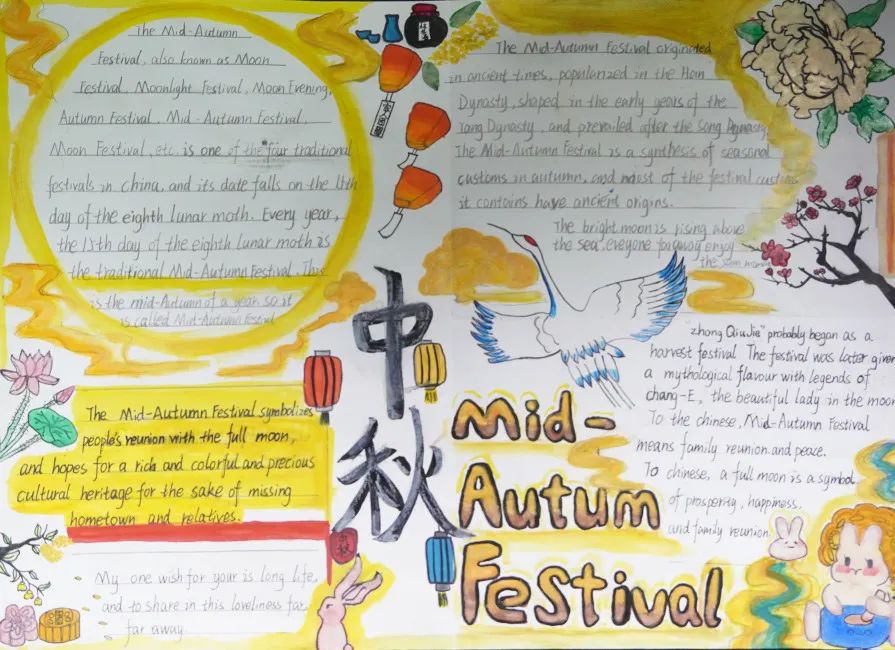 The Mid-Autumn
Festival, also known as Moon
Festival, Moonlight Festival, Moon Evening,
Autumn Festival, Mid-Autumn Festival,
Moon Festival, etc. is one of the four traditional
festivals in china, and its date falls on the 15th
day of the eighth lunar moth. Every year,
the 15th day of the eighth lunar moth is
the traditional Mid-Autumn Festival. This
is the mid-Autumn of a year, so it
is called Mid-Autumn Festival
The Mid-Autumn Festival symbolizes
people's reunion with the full moon,
and hopes for a rich and colorful and precious
cultural heritage for the sake of missing
hometown and relatives.
My one wish for your is long life,
and to share in this loveliness far,
far away.
中
秋
中秋
Mid-
Autum
Festival
The Mid-Autumn Festival originated
in ancient times, popularized in the Han
Dynasty, shaped in the early years of the
Tang Dynasty, and prevailed after the song Dynasty
The Mid-Autumn Festival is a synthesis of seasonal
customs in autumn, and most of the festival customs
it contains have ancient origins.
The bright moon is rising above
the sea, enjoy
the
"zhong QiuJie" probably began as a
harvest festival The festival was later given
a mythological flavour with legends of
chang-E, the beautiful lady in the moon
To the chinese, Mid-Autumn Festival
means family reunion and peace.
To chinese, a full moon is a symbol
of prosperity, happiness,
and family reunion